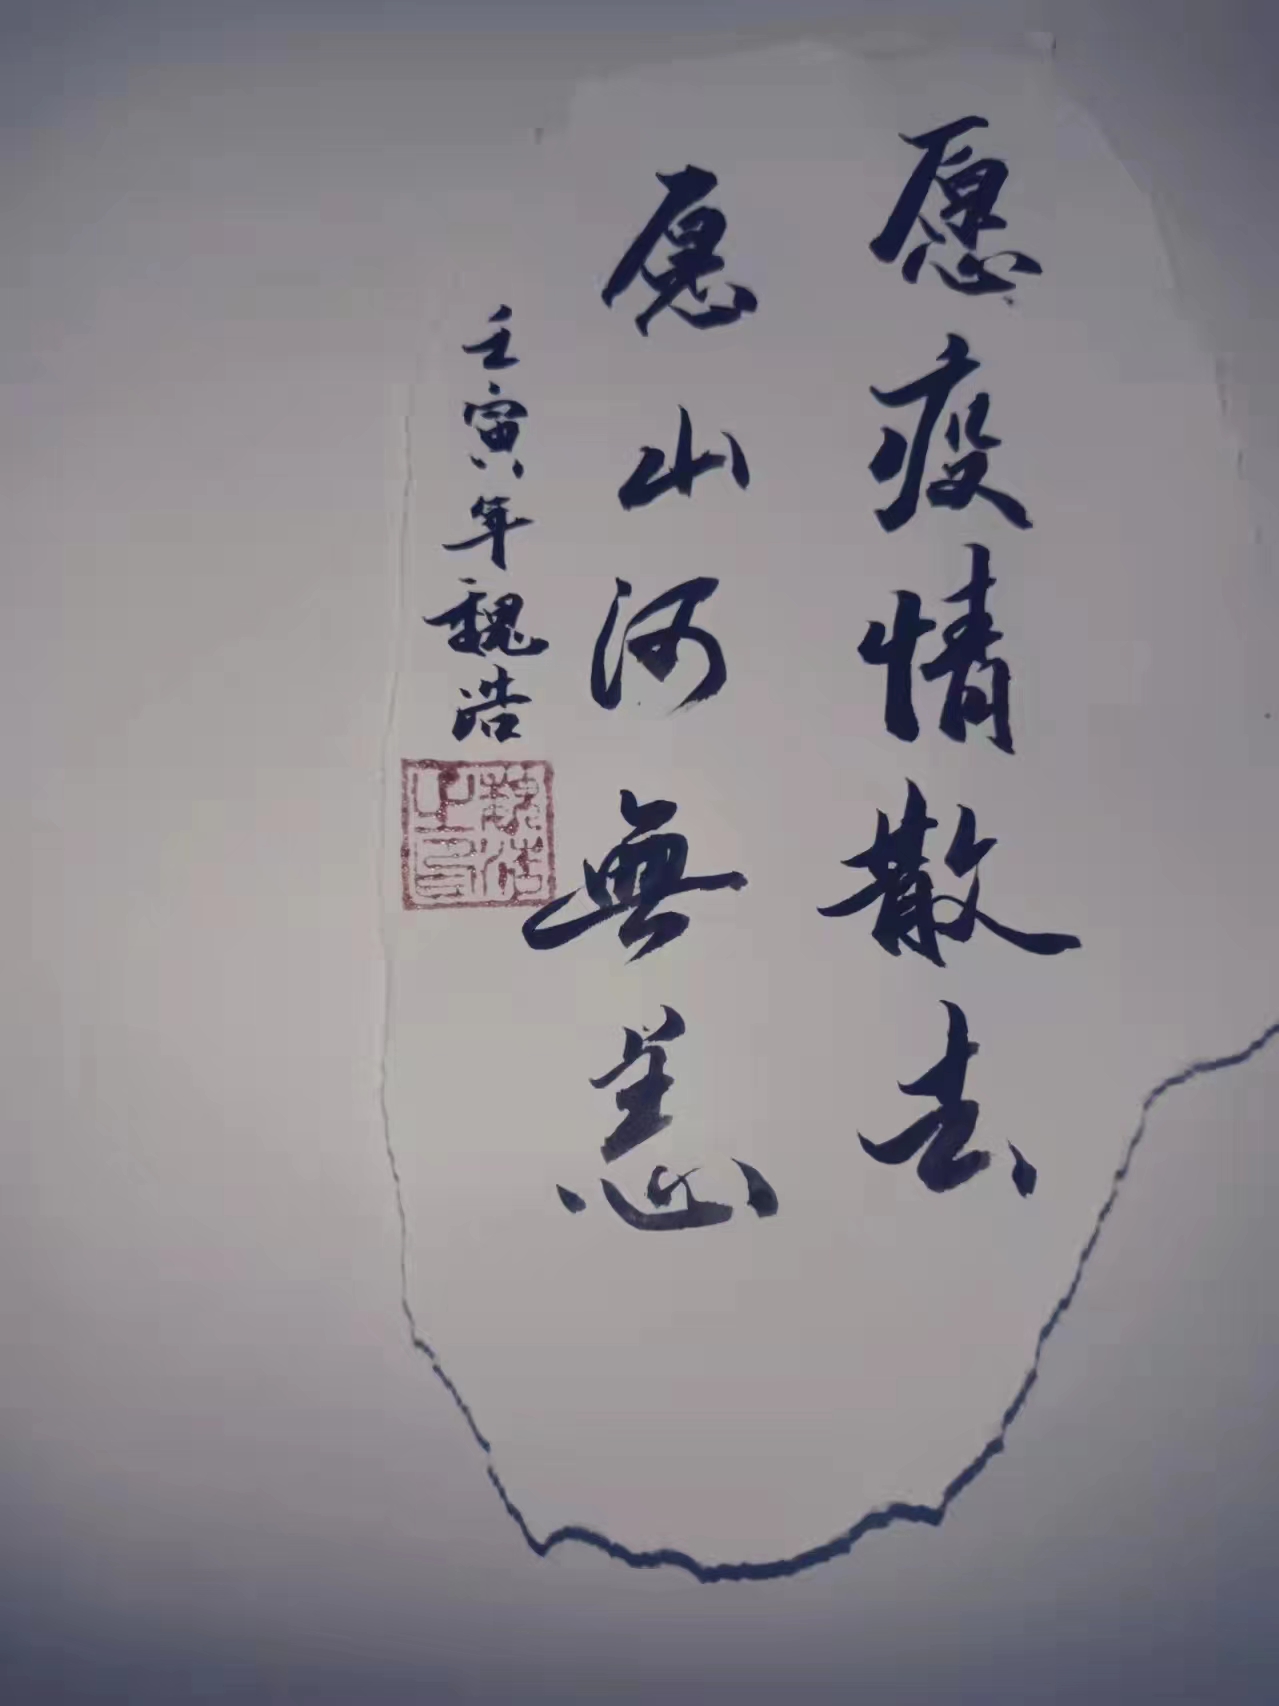 愿疫情散去
愿山河無恙
壬寅年魏浩
魏浩之印